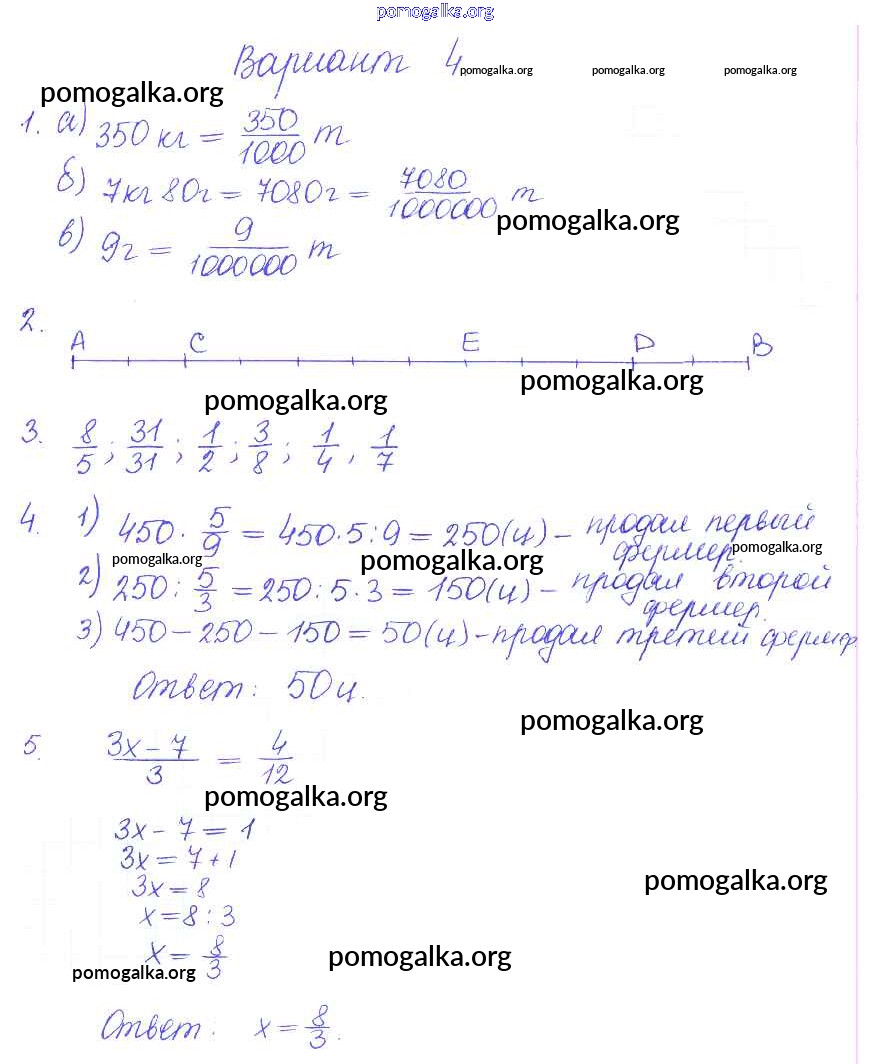 pomogalka.org
Вариант 4
pomogalka.org pomogalka.org pomogalka.org
pomogalka.org
1. а) 350 кг = 350/1000 т
б) 7кг 80г = 7080г = 7080/1000000 т
pomogalka.org
в) 9г = 9/1000000 т
2.
A C E D B
pomogalka.org
pomogalka.org
3. 8/5; 31/31; 1/2; 3/8; 1/4, 1/7
4. 1) 450 · 5/9 = 450·5:9 = 250(ц) – продал первый
фермер.
pomogalka.org pomogalka.org pomogalka.org
2) 250 : 5/3 = 250:5·3 = 150(ц) – продал второй
фермер.
3) 450 – 250 – 150 = 50(ц) - продал третий фермер.
Ответ: 50ц.
pomogalka.org
5. 3x – 7/3 = 4/12
pomogalka.org
3x – 7 = 1
3x = 7 + 1
3x = 8
pomogalka.org
x = 8 : 3
x = 8/3
pomogalka.org
pomogalka.org
Ответ: x = 8/3.